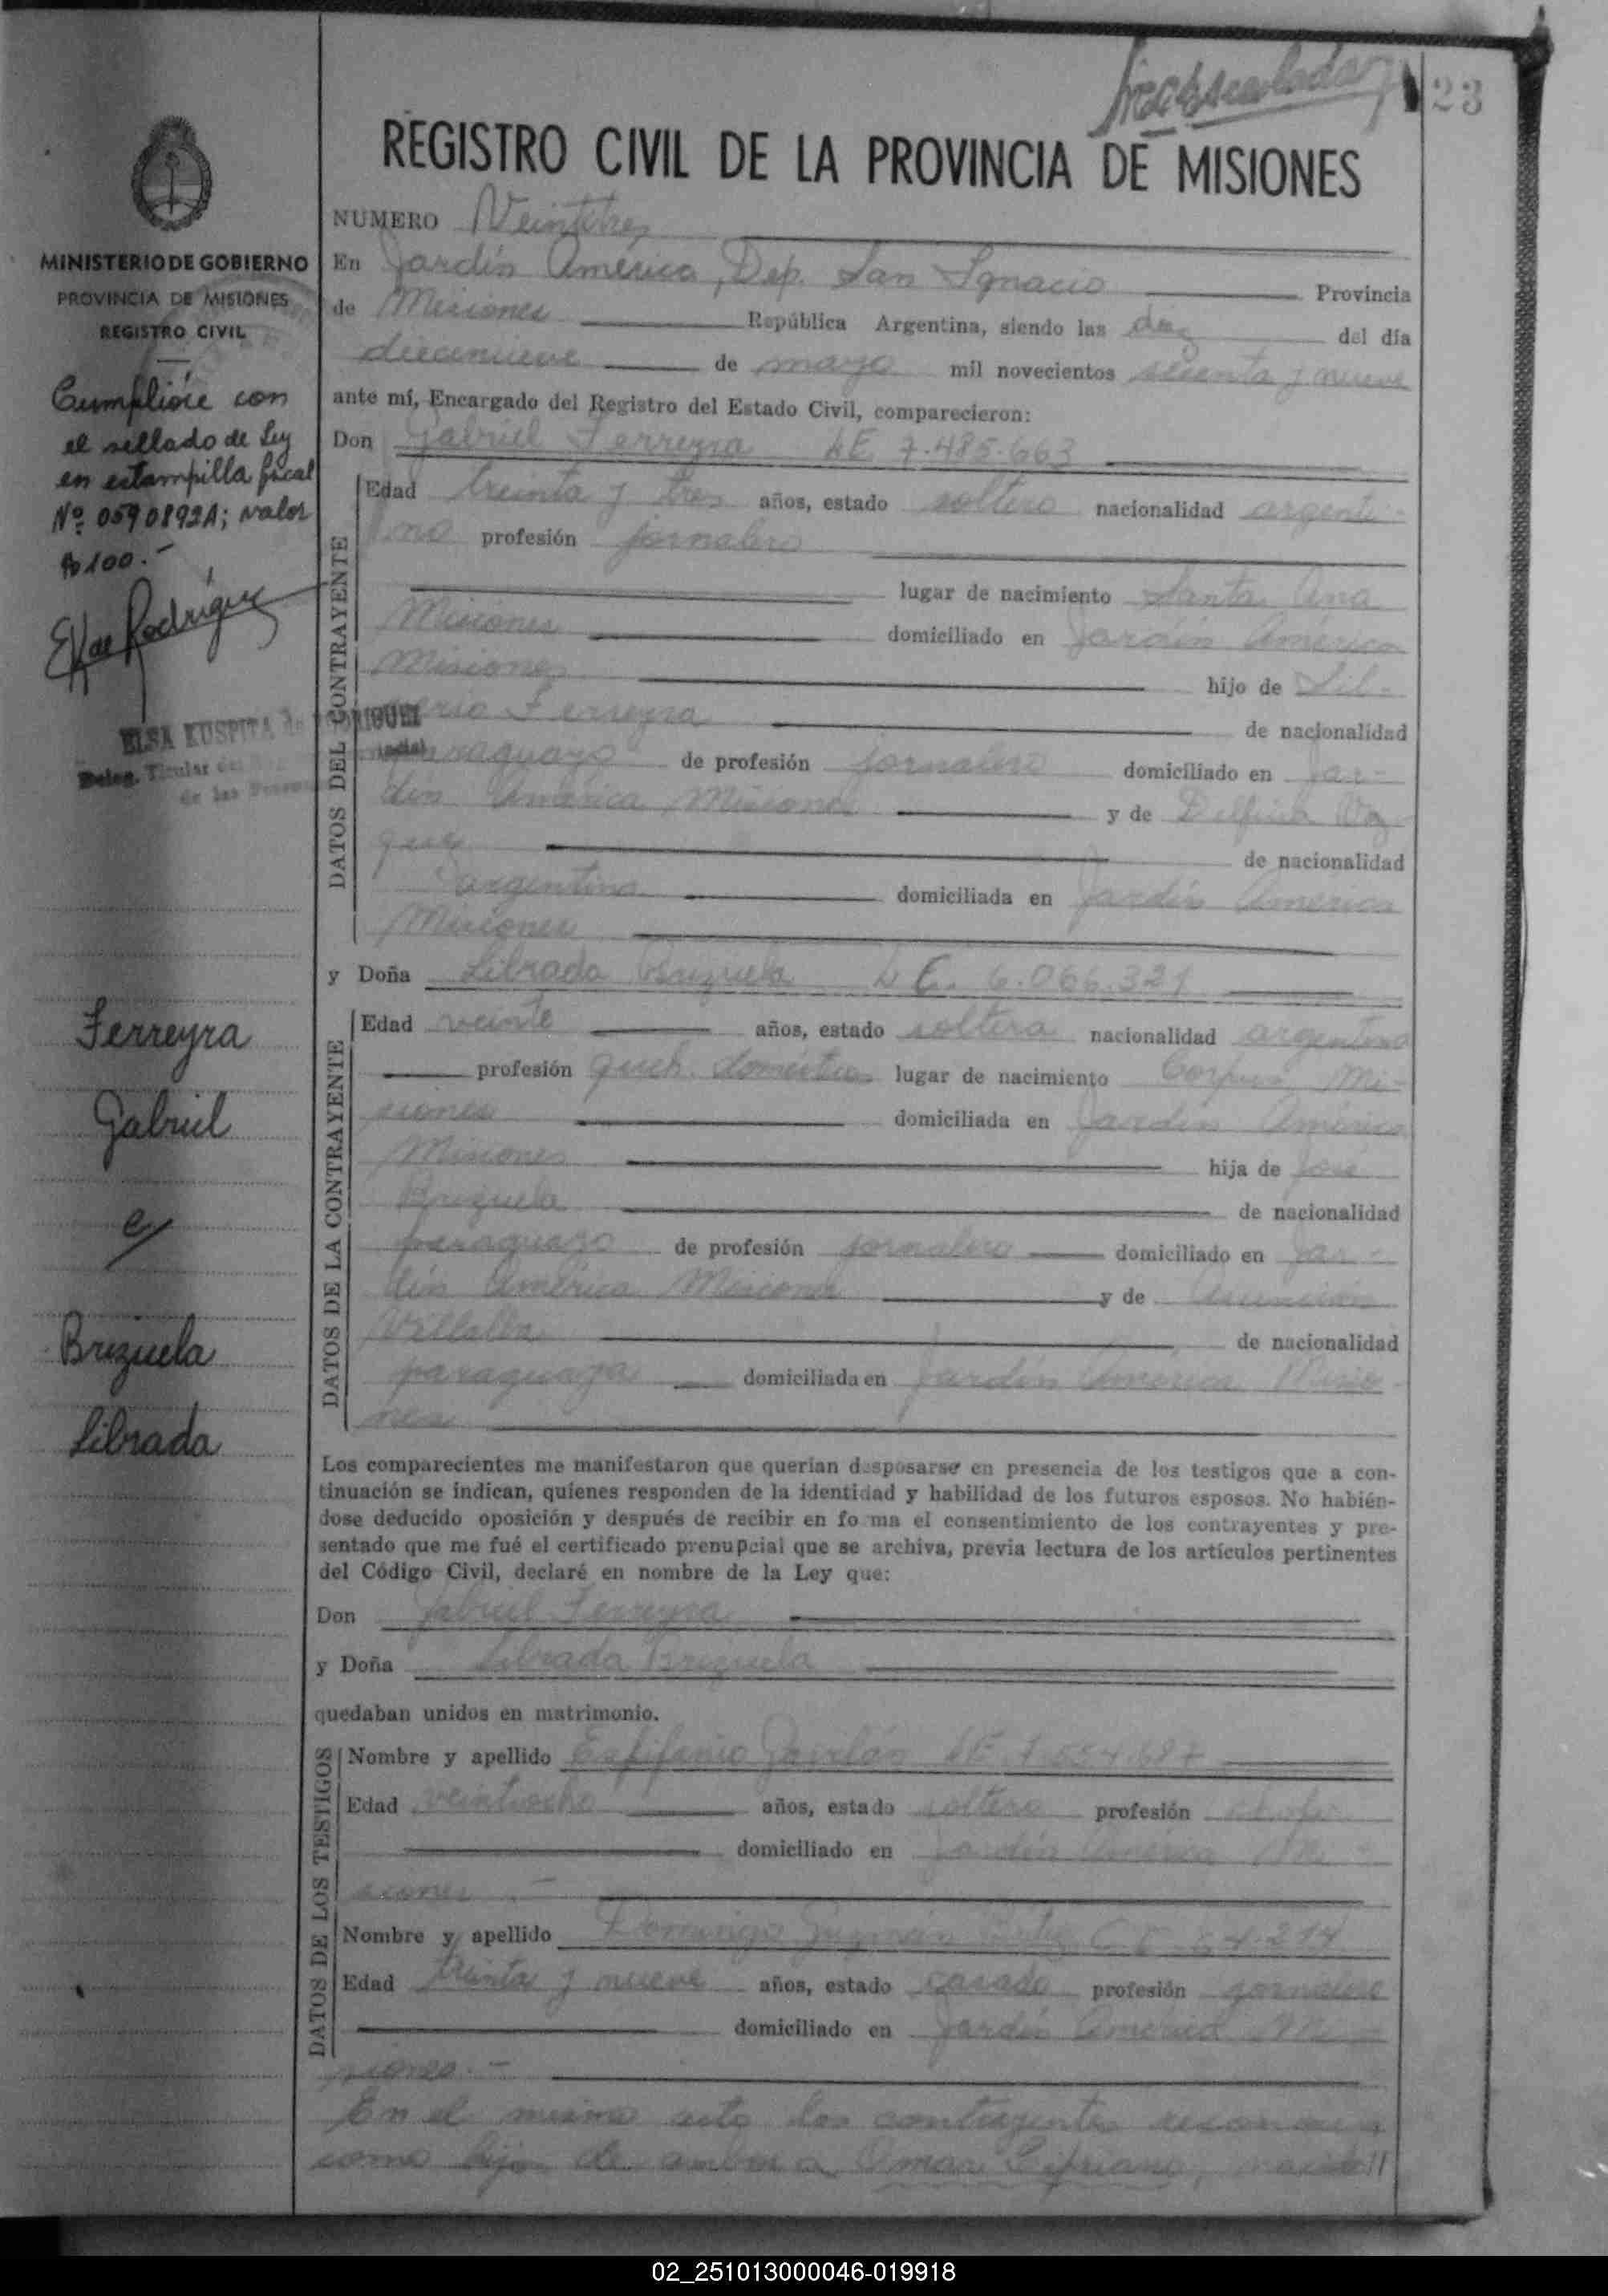 23
REGISTRO CIVIL DE LA PROVINCIA DE MISIONES
NUMERO Veintitres
En Jardín América, Dep. San Ignacio Provincia
de Misiones República Argentina, siendo las diez del día
diecinueve de mayo mil novecientos sesenta y nueve
ante mí, Encargado del Registro del Estado Civil, comparecieron:
Don Gabriel Ferreyra LE 7.485.663
DATOS DEL CONTRAYENTE
Edad treinta y tres años, estado soltero nacionalidad argenti-
no profesión jornalero
lugar de nacimiento Santa Ana
Misiones domiciliado en Jardín América
Misiones hijo de Sil-
verio Ferreyra de nacionalidad
paraguayo de profesión jornalero domiciliado en Jar-
dín América Misiones y de Delfina
de nacionalidad
argentina domiciliada en Jardín América
Misiones
y Doña Librada Brizuela L E. 6.066.321
DATOS DE LA CONTRAYENTE
Edad veinte años, estado soltera nacionalidad argentina
profesión queh. domésticos lugar de nacimiento Corpus Mi-
siones domiciliada en Jardín América
Misiones hija de José
Brizuela de nacionalidad
paraguayo de profesión jornalero domiciliado en Jar-
dín América Misiones y de Asunción
Villalba de nacionalidad
paraguaya domiciliada en Jardín América Misio-
nes
Los comparecientes me manifestaron que querían desposarse en presencia de los testigos que a con-
tinuación se indican, quienes responden de la identidad y habilidad de los futuros esposos. No habién-
dose deducido oposición y después de recibir en fo ma el consentimiento de los contrayentes y pre-
sentado que me fué el certificado prenupcial que se archiva, previa lectura de los artículos pertinentes
del Código Civil, declaré en nombre de la Ley que:
Don Gabriel Ferreyra
y Doña Librada Brizuela
quedaban unidos en matrimonio.
DATOS DE LOS TESTIGOS
Nombre y apellido Epifanio Gavilán LE 7.554.687
Edad veintiocho años, estado soltero profesión chofer
domiciliado en Jardín América Mi-
siones.-
Nombre y apellido Domingo Guzmán
Edad treinta y nueve años, estado casado profesión jornalero
domiciliado en Jardín América Mi-
siones.-
En el mismo acto los contrayentes reconocen
como hijo de ambos a Omar Cipriano, nacido//
MINISTERIO DE GOBIERNO
PROVINCIA DE MISIONES
REGISTRO CIVIL
Cumplióse con
el sellado de Ley
en estampilla fiscal
Nº 0590892A; valor
$ 100.-
E K de Rodríguez
ELSA KUSPITA de RODRIGUEZ
Deleg. Titular del
de las Personas
Ferreyra
Gabriel
e/
Brizuela
Librada
02_251013000046-019918